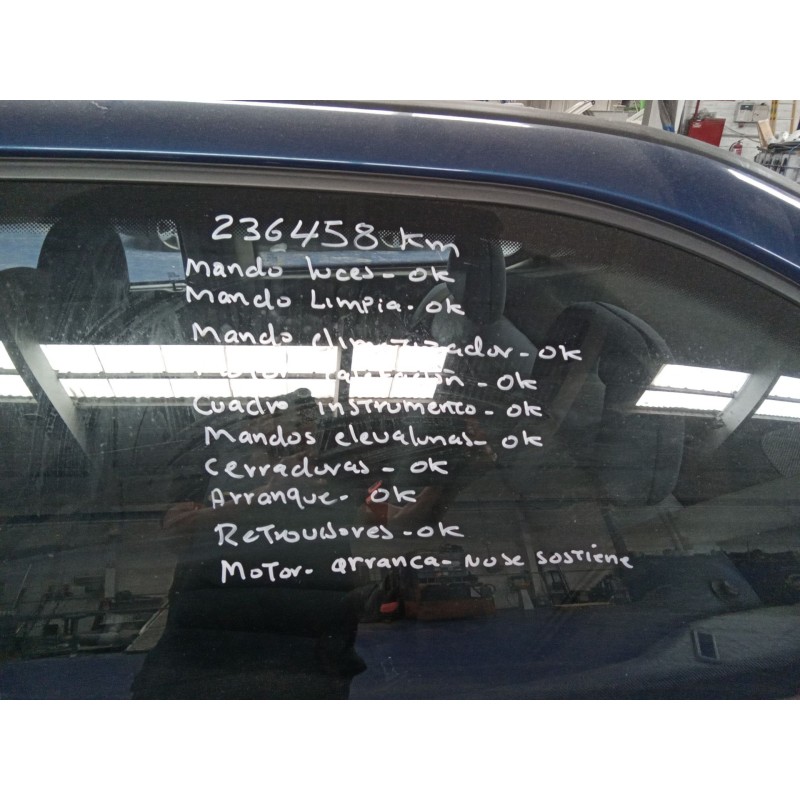 236458 km
Mando luces - ok
Mando Limpia - ok
Mando climatizador - ok
Motor - ok
Cuadro instrumento - ok
Mandos elevalunas - ok
Cerraduras - ok
Arranque - ok
Retrovisores - ok
Motor - arranca - No se sostiene